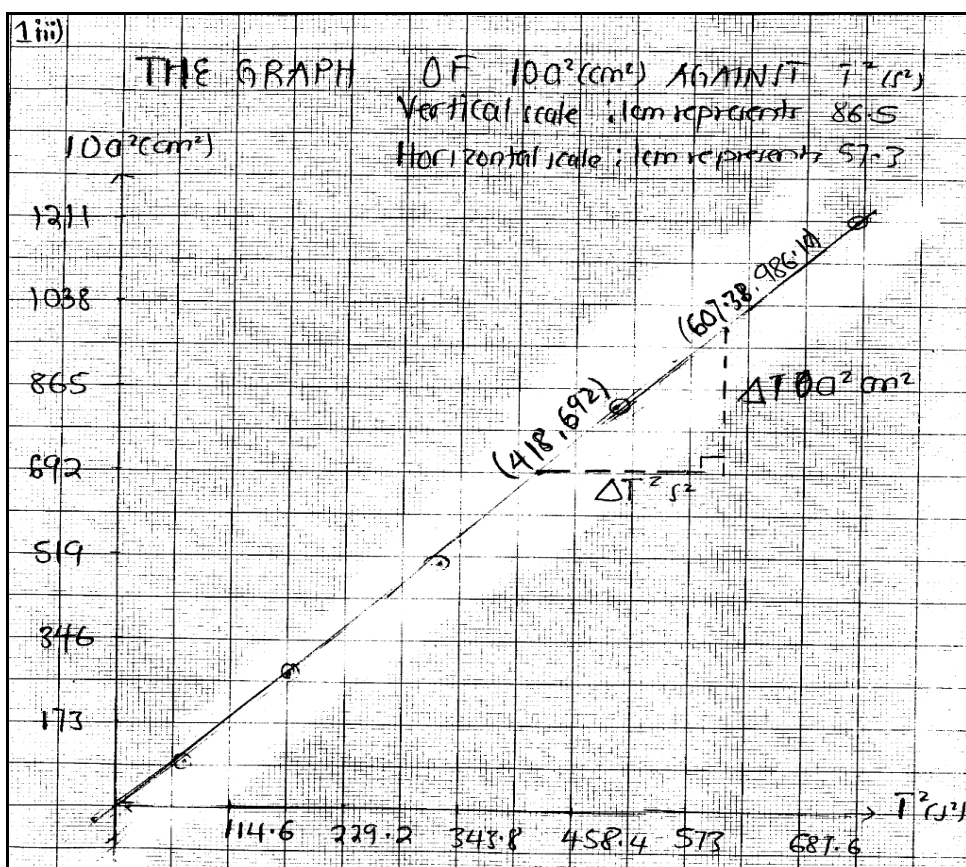 1 iii)
THE GRAPH OF 10a²(cm²) AGAINST T²(s²)
Vertical scale : 1cm represents 86.5
Horizontal scale : 1cm represents 57.3
10a²(cm²)
1211
1038
865
692
519
346
173
(607.38, 986.10)
(418, 692)
ΔT²s²
114.6 229.2 343.8 458.4 573 687.6
T²(s²)